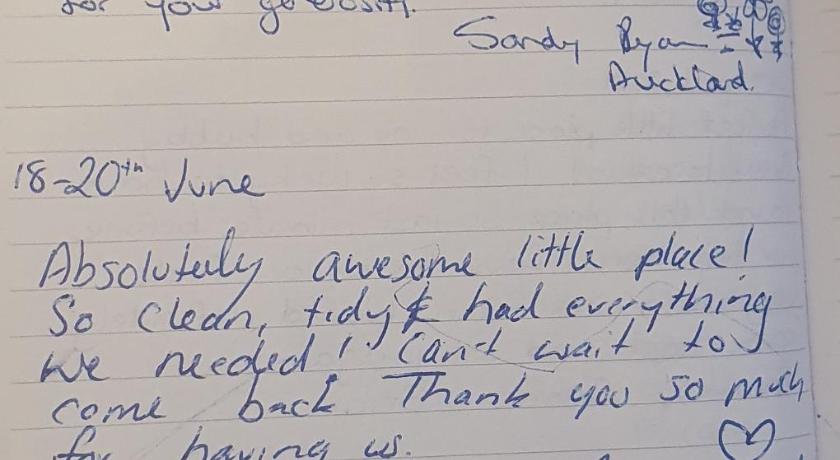 for your generosity.
Sandy Ryan
Auckland.
18-20th June
Absolutely awesome little place!
So clean, tidy & had everything
we needed! Can't wait to
come back. Thank you so much
for having us.